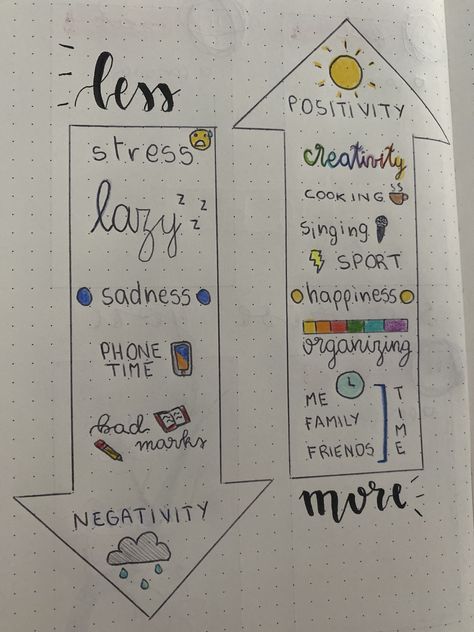 less
stress
lazy
z z
z z
sadness
PHONE
TIME
bad
marks
NEGATIVITY
POSITIVITY
creativity
COOKING
singing
SPORT
happiness
organizing
ME
FAMILY
FRIENDS
TIME
more